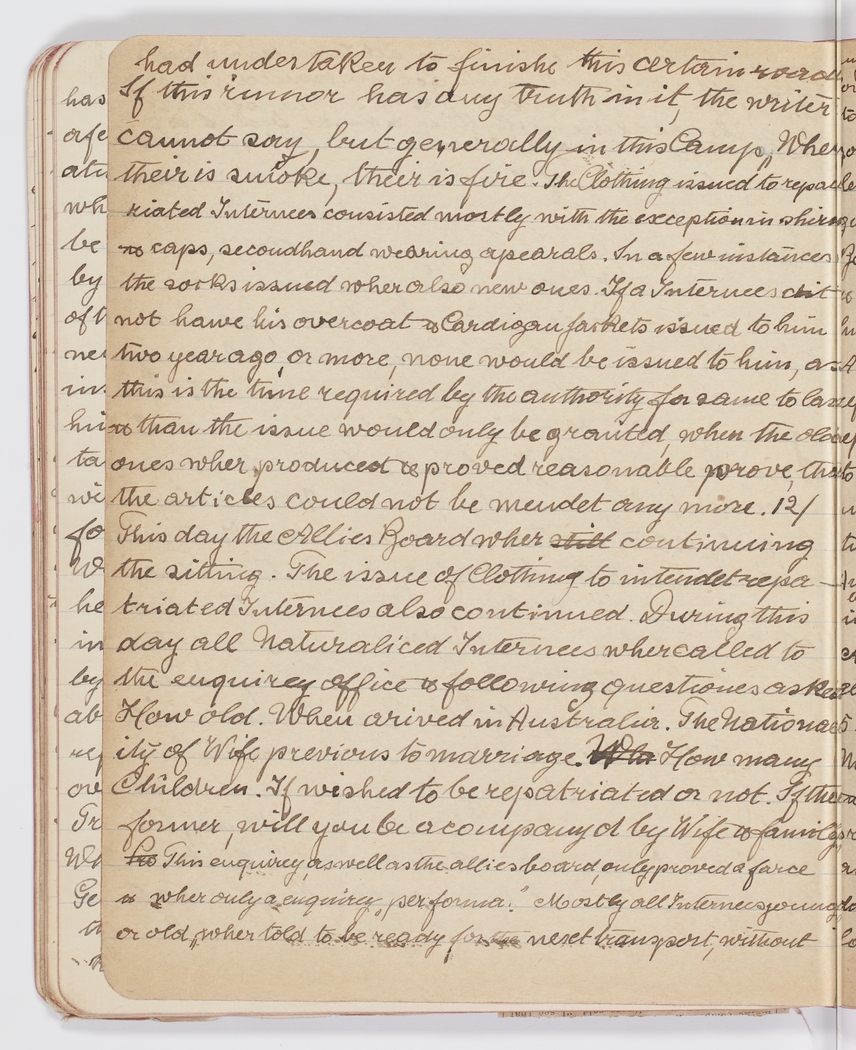 had undertaken to finishe this certain road
If this rumor has any truth in it, the writer
cannot say, but generally in this Camp, "Where
their is smoke, their is fire. The Clothing issued to repat
riated Internees consisted mostly with the exception in shirts
& caps, secondhand wearing apearals. In a few instances
the socks issued wher also new ones. If a Internees did
not hawe his overcoat & Cardigan Jackets issued to him
two year ago, or more, none would be issued to him, as
this is the time required by the authority for same to last
& than the issue would only be granted, when the old
ones wher produced & proved reasonable prove, that
the articles could not be mendet any more. 12/
This day the Allies Board wher still continuing
the sitting. The issue of Clothing to intendet repa-
triated Internees also continued. During this
day all Naturaliced Internees wher called to
the enquirey office & following questiones asked
How old. When arived in Australia. The National
ity of Wife previous to marriage. Wha How many
Children. If wished to be repatriated or not. If the
former, will you be acompanyd by Wife & family
This enquirey, as well as the allies board, only proved a farce
& wher only a enquirey "per forma." Mostly all Internees young
or old, wher told to be "ready for the next transport, without